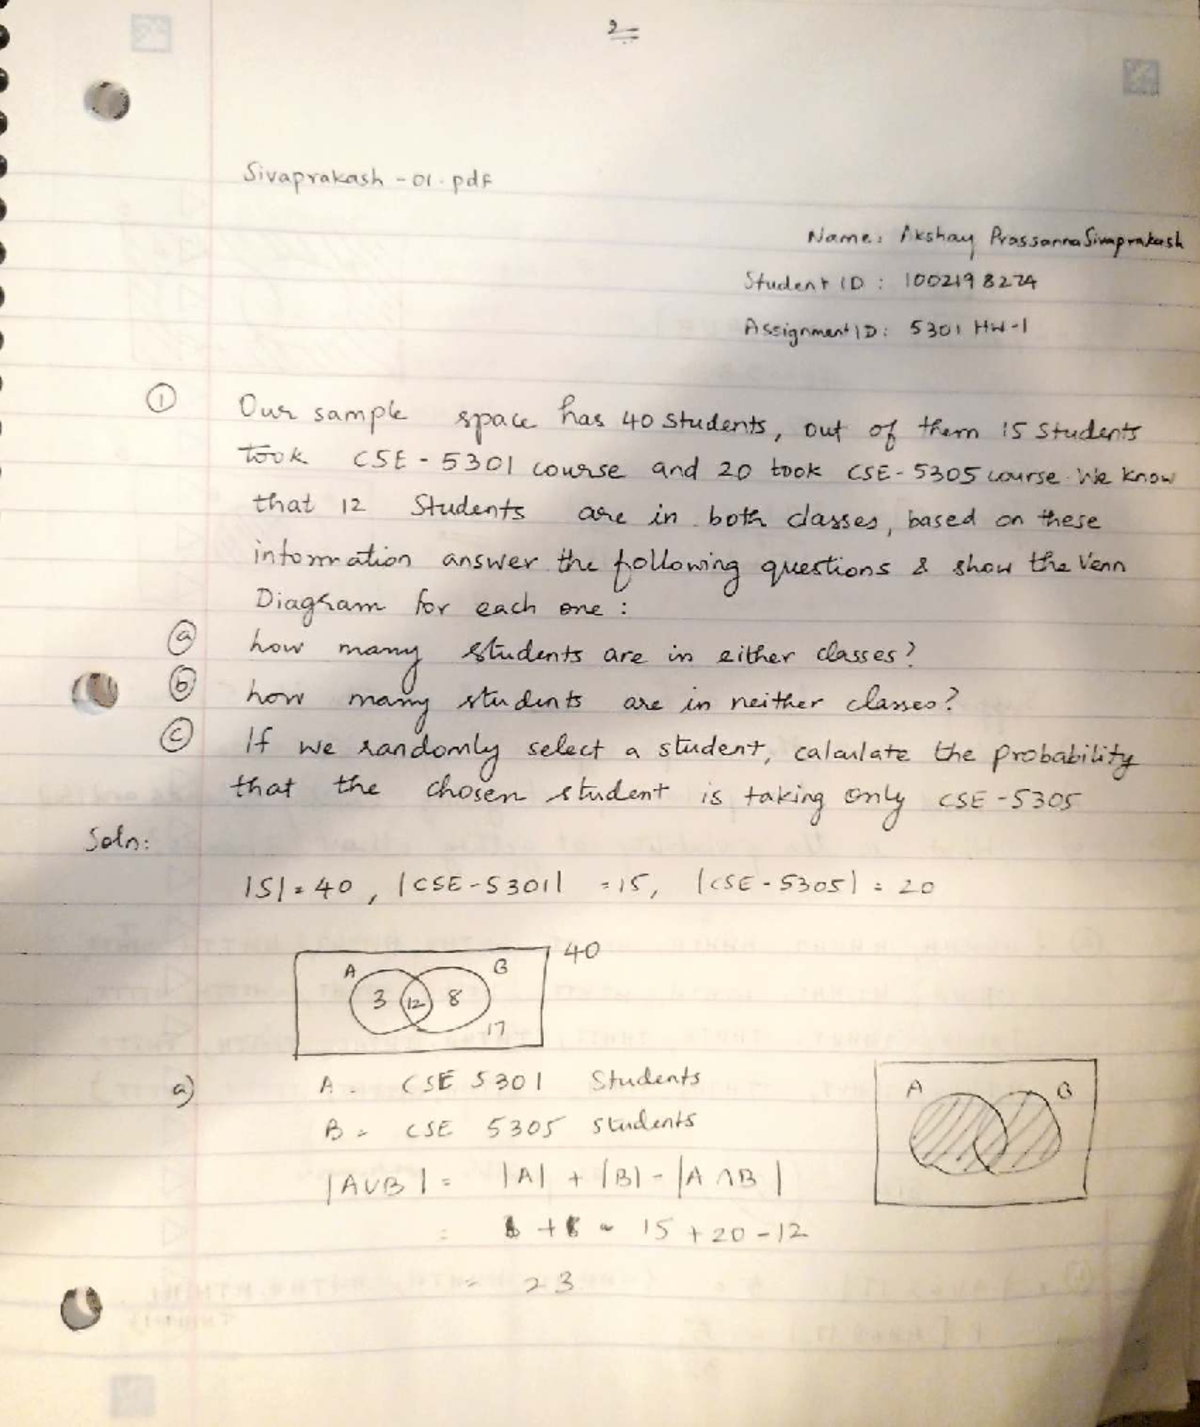 2
Sivaprakash - 01 . pdf
Name: Akshay Prassanna Sivaprakash
Student ID : 1002198274
Assignment ID: 5301 HW-1
① Our sample space has 40 students, out of them 15 Students
took CSE - 5301 course and 20 took CSE - 5305 course. We know
that 12 Students are in both classes, based on these
information answer the following questions & show the Venn
Diagram for each one :
ⓐ how many students are in either classes?
ⓑ how many students are in neither classes?
ⓒ If we randomly select a student, calculate the probability
that the chosen student is taking only CSE - 5305
Soln:
|S| = 40 , |CSE - 5301| = 15, |CSE - 5305| = 20
40
A B
3 12 8
17
a) A = CSE 5301 Students
B = CSE 5305 students
A B
|A∪B| = |A| + |B| - |A ∩ B|
= 15 + 20 - 12
= 23